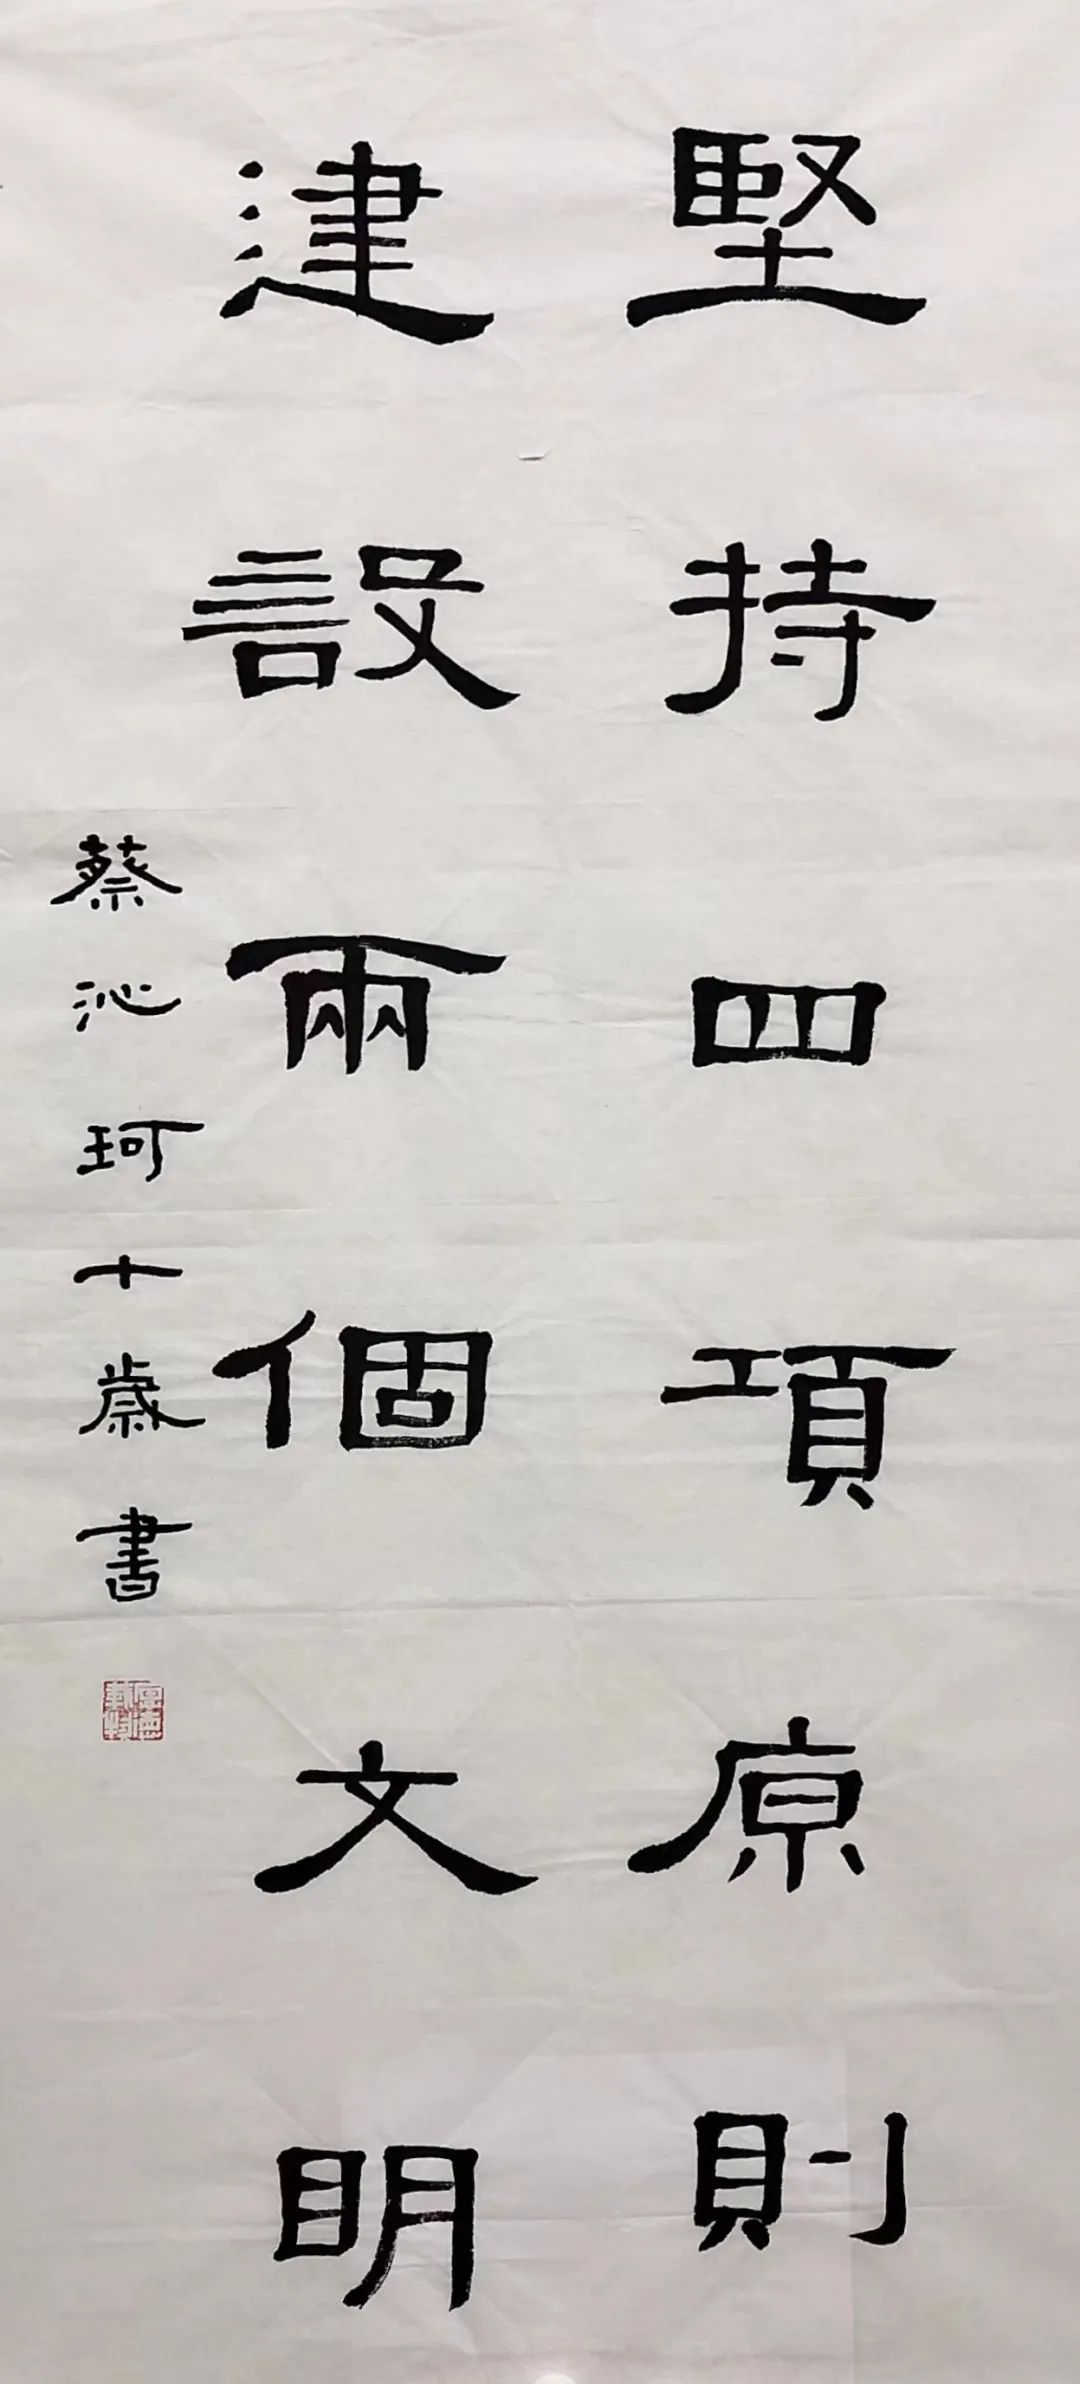 堅持四項原則
建設兩個文明
蔡沁珂十歲書